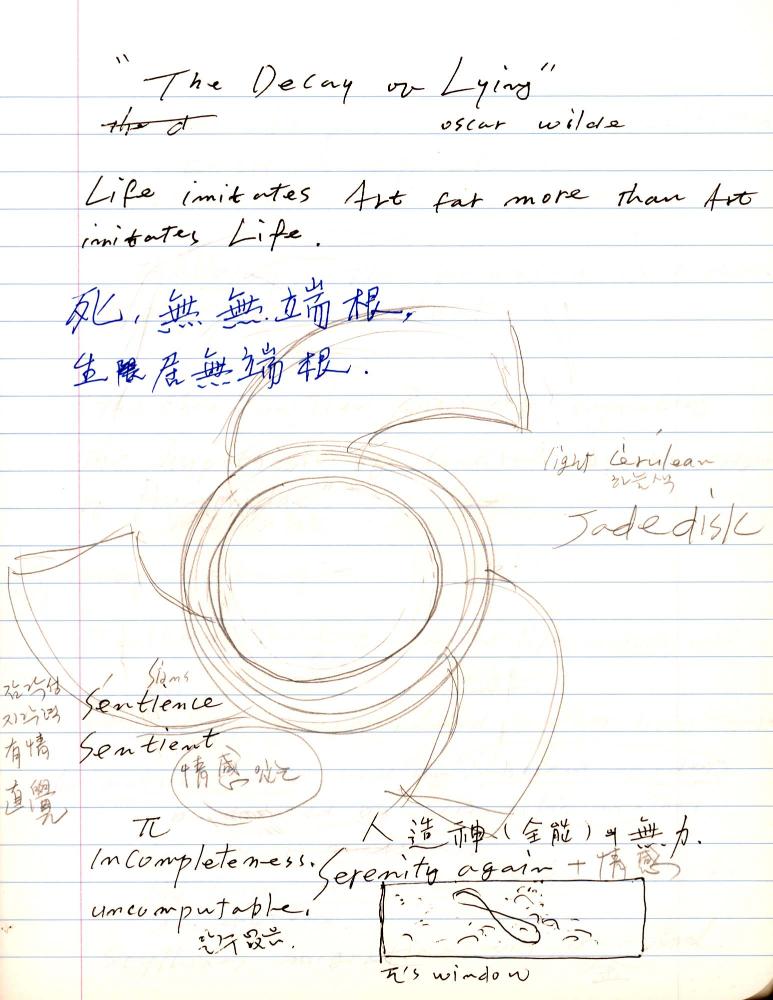 "The Decay of Lying"
the d
oscar wilde
Life imitates Art far more than Art
imitates Life.
死, 無無端根,
生 居無端根.
light cerulean
하늘색
Jadedisk
signs
감각성
sentience
지각력
sentient
有情
情感 있는
直覺
π
Incompleteness.
人造神(全能)의 無力.
Serenity again + 情感
uncomputable.
알수없는.
π's window